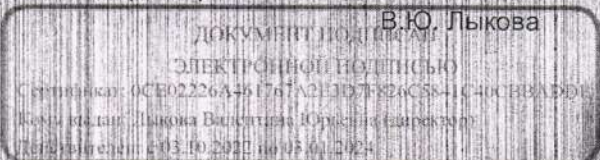 В.Ю. Лыкова
ДОКУМЕНТ ПОДПИСАН
ЭЛЕКТРОННОЙ ПОДПИСЬЮ
Сертификат:
Кому выдан: Лыкова Валентина Юрьевна (директор)
Действителен: с 03.10.2022 по 03.01.2024